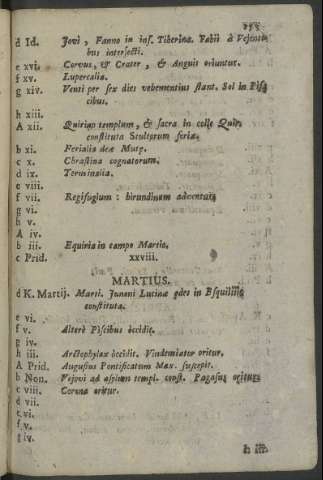 d Id. Jovi, Fanno in inſ. Tiberina. Fabii à Vejenti
bus interfecti.
e xvi. Corvus, & Crater, & Anguis oriuntur.
f xv. Lupercalia.
g xiv. Venti per ſex dies vehementius ſtant. Sol in Piſ
cibus.
h xiii.
A xii. Quirino templum, & ſacra in colle Quir.
conſtituta Stultorum feriæ.
b xi. Ferialia deæ Mutæ.
c x. Chraſtina cognatorum.
d ix. Terminalia.
e viii.
f vii. Regifugium: hirundinum adventus
g vi.
h v.
A iv.
b iii. Equiria in campo Martio.
c Prid. xxviii.
MARTIUS.
d K. Martij. Marti. Junoni Lucinæ ædes in Eſquiliis
conſtituta.
e vi.
f v. Alterè Piſcibus òccidit.
g iv.
h iii. Arctophylax òccidit. Vindemiator oritur.
A Prid. Auguſtus Pontificatum Max. ſuſcepit.
b Non. Vejovi ad aſylum templ. conſt. Pagaſus oritur
c viii. Corona oritur.
d vii.
e vi.
f v.
g iv.
h iii.